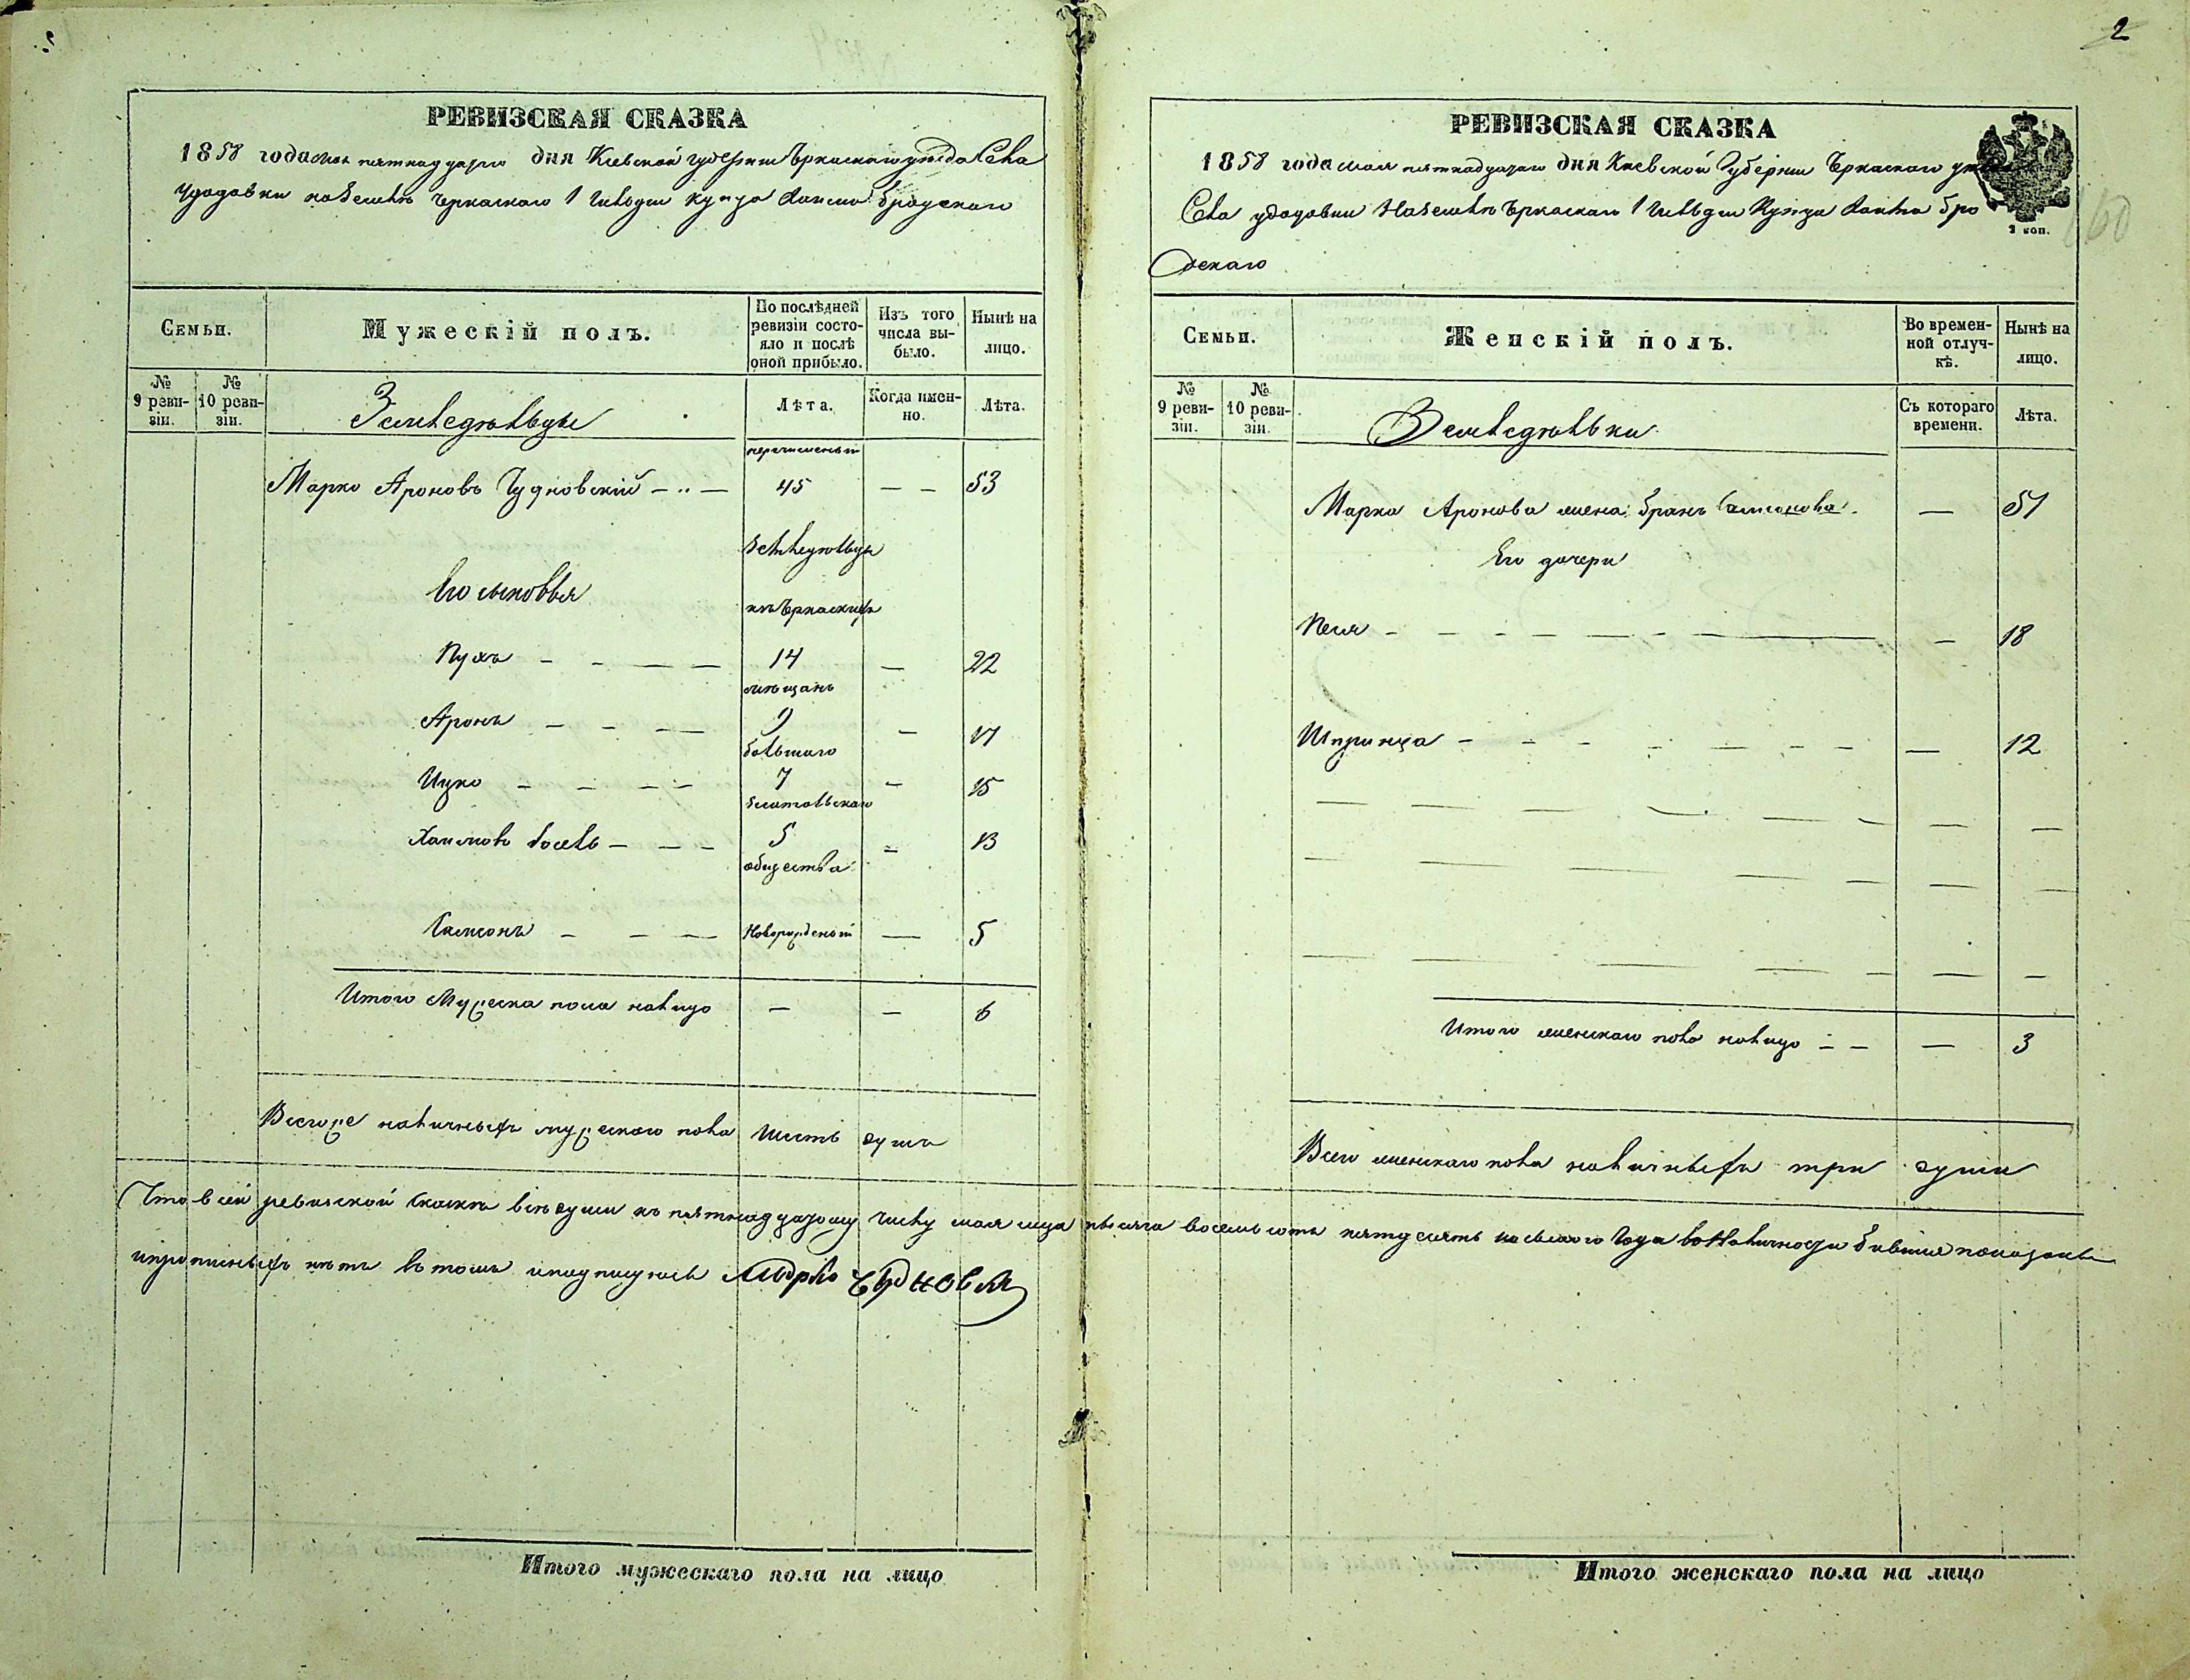 2
РЕВИЗСКАЯ СКАЗКА
1858 года мая пятнадцатаго дня Кіевской губерніи Черкаскаго уѣзда Села
на землѣ Черкаскаго 1 гильдіи купца Хаима Бродскаго
Семьи.
Мужескій полъ.
По послѣдней ревизіи состо-яло и послѣ оной прибыло.
Изъ того числа вы-было.
Нынѣ на лицо.
№ 9 реви-зіи.
№ 10 реви-зіи.
Земледѣльцы
Лѣта.
Когда имен-но.
Лѣта.
перечисленый
Марко Ароновъ Чудновскій 45 — — 53
земледѣльцы
Его сыновья
изъ Черкаскихъ
14 — 22
мѣщанъ
Аронъ — — — 9 — 17
большаго
Ицко — — — — 7 — 15
общества
Хаимовъ — — — 5 — 13
Самсонъ — — — Новорожденый — 5
Итого Мужеска пола налицо — — 6
Всего же наличныхъ мужескаго пола шесть душъ
РЕВИЗСКАЯ СКАЗКА
1858 года мая пятнадцатаго дня Кіевской Губерніи Черкаскаго
Села на землѣ Черкаскаго 1 гильдіи Купца Хаима Бро
дскаго
3 коп.
60
Семьи.
Женскій полъ.
Во времен-ной отлуч-кѣ.
Нынѣ на лицо.
№ 9 реви-зіи.
№ 10 реви-зіи.
Земледѣлки
Съ котораго времени.
Лѣта.
Марка Аронова жена Бранъ Самсонова — 51
Его дочери
Песя — — — — — — — — 18
Шпринца — — — — — — — — 12
Итого женскаго пола налицо — — — 3
Всего женскаго пола наличныхъ три души
Что в сей ревизской сказкѣ всѣ души къ пятнадцатому числу мая мца тысяча восемьсотъ пятдесятъ осьмого года в наличности бывшие показаны
и прописныхъ нѣтъ въ томъ и подписуюсь Марко
Итого мужескаго пола на лицо
Итого женскаго пола на лицо